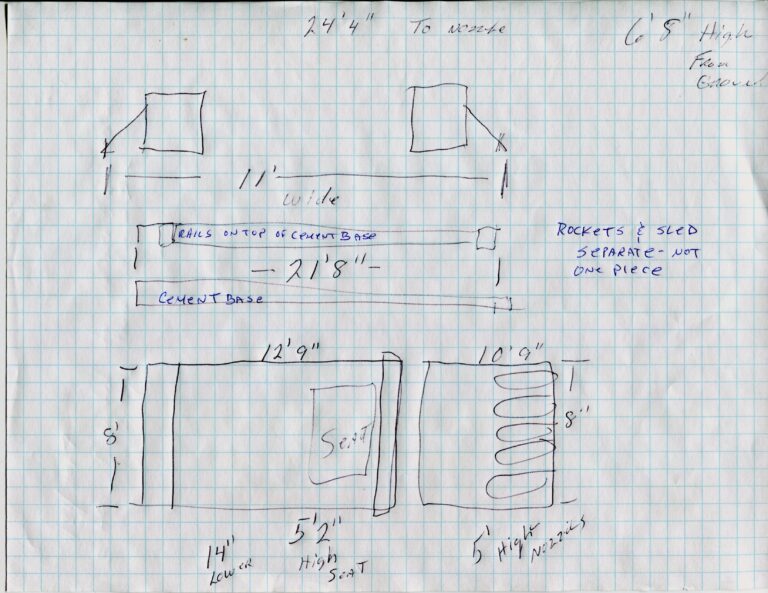 24'4" To Nozzle
6'8" High
From
Ground
11'
Wide
RAILS ON TOP OF CEMENT BASE
21'8"
CEMENT BASE
ROCKETS & SLED
SEPARATE - NOT
ONE PIECE
12'9"
10'9"
8'
Seat
8"
14"
Lower
5'2"
High
Seat
5' High
Nozzles